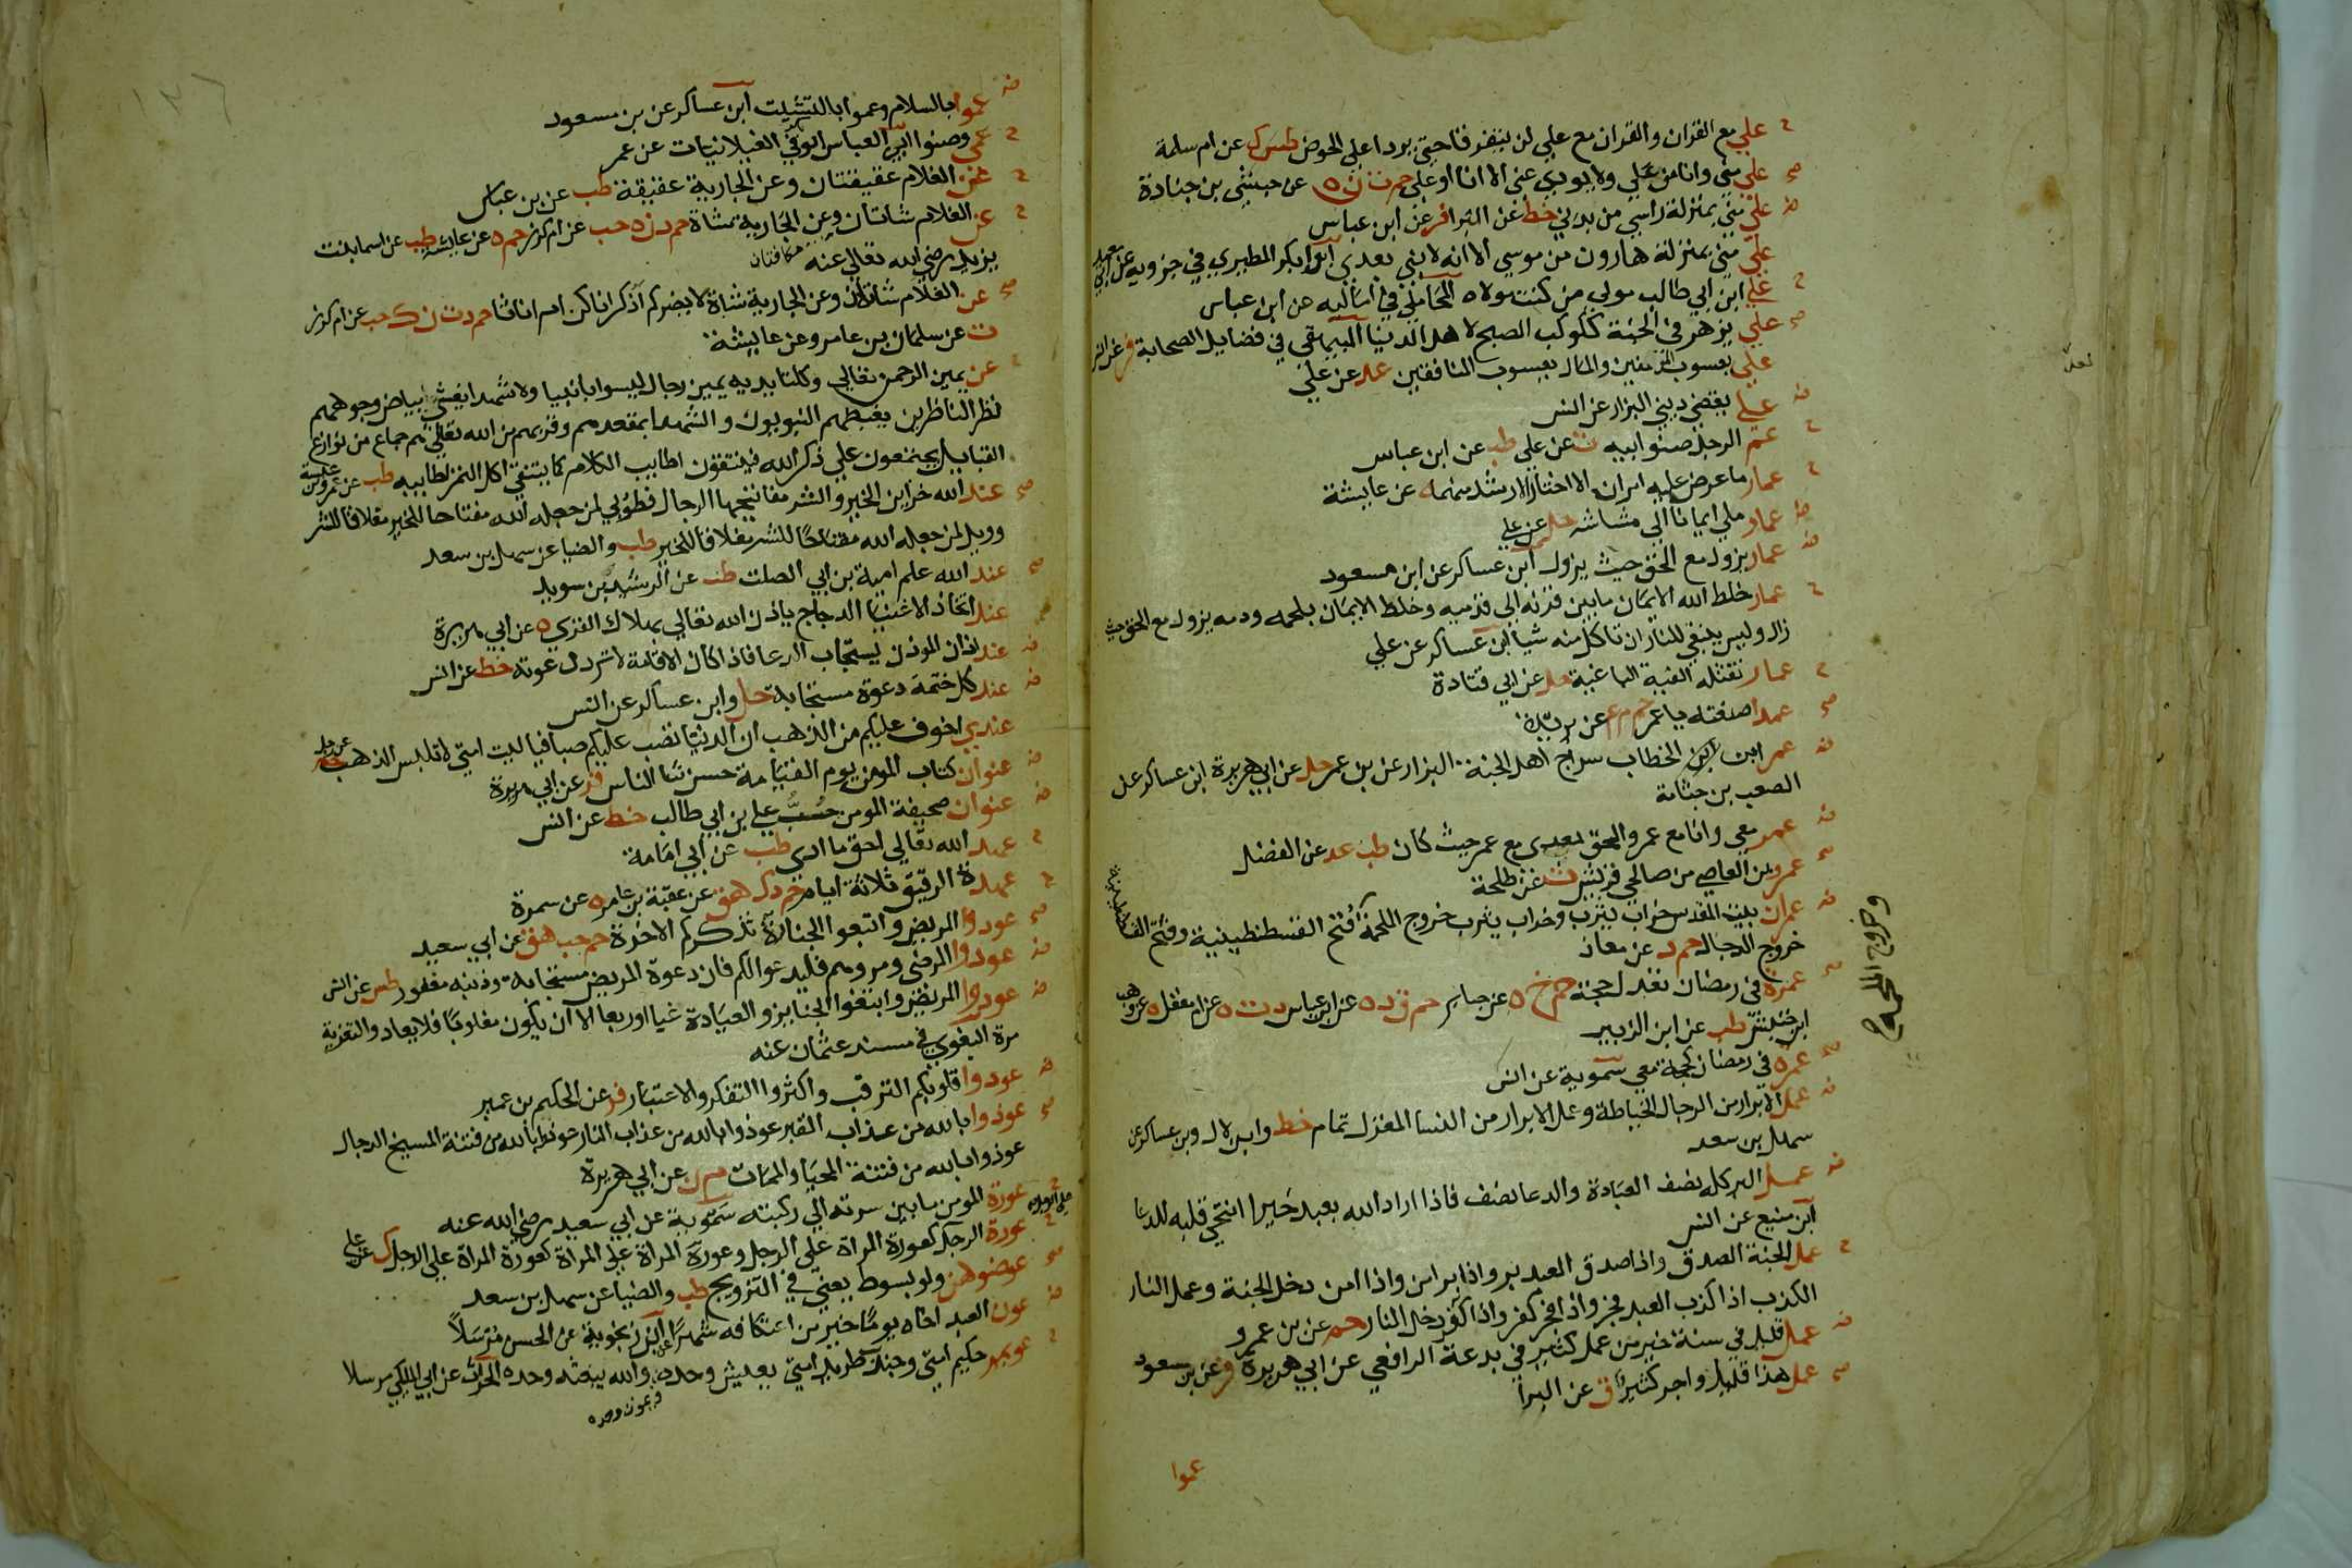 علي مع القران والقران مع علي لن يفترقا حتى يردا على الحوض طس ك عن ام سلمة
علي مني وانا من علي ولا يودي عني الا انا او علي حم ت ن ه عن حبشي بن جنادة
علي مني بمنزلة راسي من بدني خط عن البرا فر عن ابن عباس
علي مني بمنزلة هارون من موسي الا انه لا نبي بعدي ابو بكر المطيري في جزويه عن ابي سعيد
علي ابن ابي طالب مولي من كنت مولاه المحاملي في اماليه عن ابن عباس
علي يزهر في الجنة ككوكب الصبح لاهل الدنيا البيهقي في فضايل الصحابة فر عن انس
علي يعسوب المومنين والمال يعسوب المنافقين عد عن علي
علي يقضي ديني البزار عن انس
عم الرجل صنو ابيه ت عن علي طب عن ابن عباس
عمار ما عرض عليه امران الا اختار الارشد منهما ه عن عايشة
عمار ملي ايمانا الي مشاشه حل عن علي
عمار يزول مع الحق حيث يزول ابن عساكر عن ابن مسعود
عمار خلط الله الايمان ما بين قرنه الي قدميه وخلط الايمان بلحمه ودمه يزول مع الحق حيث
زال وليس ينبغي للنار ان تاكل منه شيا ابن عساكر عن علي
عمار تقتله الفية الباغية حل عن ابي قتادة
عمدا صنعته يا عمر حم م عن بريدة
عمر ابن الخطاب سراج اهل الجنة البزار عن بن عمر حل عن ابي هريرة ابن عساكر عن
الصعب بن جثامة
عمر معي وانا مع عمر والحق بعدي مع عمر حيث كان طب عد عن الفضل
عمرو بن العاصي من صالحي قريش ت عن طلحة
عمران بيت المقدس خراب يثرب وخراب يثرب خروج الملحمة فتح القسطنطينية وفتح القسطنطينية
وخروج الملحمة
خروج الدجال حم د عن معاذ
عمرة في رمضان تعدل حجة حم خ ه عن جابر حم ق د ه عن ابن عباس د ت ه عن ام معقل ه عن وهب
ابن خنبش طب عن ابن الزبير
عمرة في رمضان كحجة معي سموية عن انس
عمل الابرار من الرجال الخياطة وعمل الابرار من النسا المغزل تمام خط وابن لال وبن عساكر عن
سهل بن سعد
عمل البر كله نصف العبادة والدعا نصف فاذا اراد الله بعبد خيرا انتحي قلبه للدعا
ابن منيع عن انس
عمل الجنة الصدق واذا صدق العبد بر واذا بر امن واذا امن دخل الجنة وعمل النار
الكذب اذا كذب العبد فجر واذا فجر كفر واذا كفر دخل النار حم عن بن عمرو
عمل قليل في سنة خير من عمل كثير في بدعة الرافعي عن ابي هريرة فر عن بن مسعود
عمل هذا قليلا واجر كثيرا ق عن البرا
عموا
لعله
١٣٦
عموا بالسلام وعموا بالتشميت ابن عساكر عن بن مسعود
عمي وصنو ابي العباس ابو بكر في الغيلانيات عن عمر
عن الغلام عقيقتان وعن الجارية عقيقة طب عن بن عباس
عن الغلام شاتان وعن الجارية شاة حم د ن ه حب عن ام كرز حم ه عن عايشة طب عن اسما بنت
يزيد رضي الله تعالي عنه مكافتان
عن الغلام شاتان وعن الجارية شاة لا يضركم اذكرانا كن ام اناثا حم د ت ن ك حب عن ام كرز
ت عن سلمان بن عامر وعن عايشة
عن يمين الرحمن تعالي وكلتا يديه يمين رجال ليسوا بانبيا ولا شهدا يغشي بياض وجوههم
نظر الناظرين يغبطهم النبيون والشهدا بمقعدهم وقربهم من الله تعالي هم جماع من نوازع
القبايل يجتمعون علي ذكر الله فينتقون اطايب الكلام كما ينتقي اكل التمر اطايبه طب عن عمرو بن عبسة
عند الله خزاين الخير والشر مفاتيحها الرجال فطوبي لمن جعله الله مفتاحا للخير مغلاقا للشر
وويل لمن جعله الله مفتاحا للشر مغلاقا للخير طب والضيا عن سهل بن سعد
عند الله علم امية بن ابي الصلت طب عن الرشيد بن سويد
عند اتخاذ الاغنيا الدجاج ياذن الله تعالي بهلاك القري ه عن ابي هريرة
عند اذان الموذن يستجاب الدعا فاذا كان الاقامة لا ترد دعوته خط عن انس
عند كل ختمة دعوة مستجابة حل وابن عساكر عن انس
عندي اخوف عليكم من الذهب ان الدنيا تصب عليكم صبا فيا ليت امتي لا تلبس الذهب حم عن رجل
عنوان كتاب المومن يوم القيامة حسن ثنا الناس فر عن ابي هريرة
عنوان صحيفة المومن حب علي بن ابي طالب خط عن انس
عهد الله تعالي احق ما ادي طب عن ابي امامة
عهدة الرقيق ثلاثة ايام حم د ك هق عن عقبة بن عامر ه عن سمرة
عودوا المريض واتبعوا الجنازة تذكركم الاخرة حم حب هق عن ابي سعيد
عودوا المرضي ومروهم فليدعوا لكم فان دعوة المريض مستجابة وذنبه مغفور طس عن انس
عودوا المريض واتبعوا الجنايز والعيادة غبا اوربعا الا ان يكون مغلوبا فلا يعاد والتعزية
مرة البغوي في مسند عثمان عنه
عودوا قلوبكم الترقب واكثروا التفكر والاعتبار فر عن الحكم بن عمير
عوذوا بالله من عذاب القبر عوذوا بالله من عذاب النار عوذوا بالله من فتنة المسيح الدجال
عوذوا بالله من فتنة المحيا والممات م ن عن ابي هريرة
عورة المومن ما بين سرته الي ركبته سموية عن ابي سعيد رضي الله عنه
عورة الرجل علي الرجل كعورة المراة علي الرجل وعورة المراة علي المراة كعورة المراة علي الرجل ك عن علي
عوضوهن ولو بسوط يعني في التزويج طب والضيا عن سهل بن سعد
عون العبد اخاه يوما خير من اعتكافه شهرا ابن زنجوية عن الحسن مرسلا
عويمر حكيم امتي وجندب طريد امتي يعيش وحده والله يبعثه وحده الحرث عن ابي المليكي مرسلا
ويموت وحده